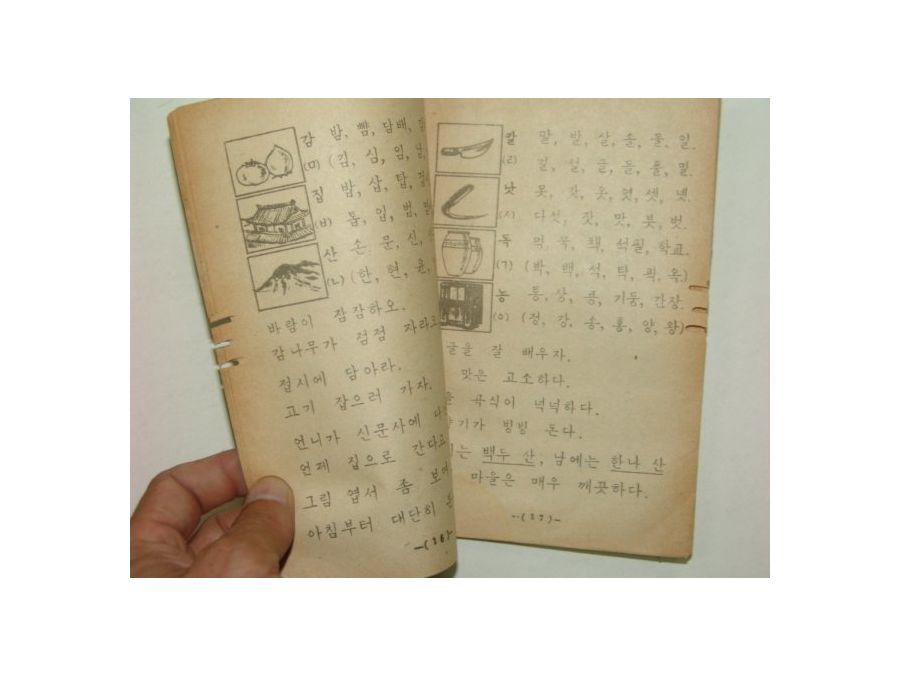 감 밤, 뺨, 담배,
(ㅁ) (김, 심, 임,
집 밥, 삽, 탑,
(ㅂ) 톱, 입, 범,
산 손, 문, 신,
(ㄴ) (한, 현, 윤,
바람이 잠잠하오.
감나무가 점점 자라고
접시에 담아라.
고기 잡으러 가자.
언니가 신문사에
언제 집으로 간다고
그림 엽서 좀 보여
아침부터 대단히
-(26)-
칼 말, 발, 살, 솔, 물, 일.
(ㄹ) 길, 설, 글, 들, 풀, 밀.
낫 못, 갓, 옷, 엿, 셋, 넷.
(ㅅ) 다섯, 잣, 맛, 붓, 벗.
독 먹, 목, 책, 석필, 학교.
(ㄱ) (박, 백, 석, 탁, 곽, 옥.)
농 통, 상, 콩, 기둥, 간장.
(ㅇ) (정, 강, 송, 홍, 양, 왕)
글을 잘 배우자.
맛은 고소하다.
곡식이 넉넉하다.
빙빙 돈다.
는 백두 산, 남에는 한나 산
마을은 매우 깨끗하다.
-(27)-